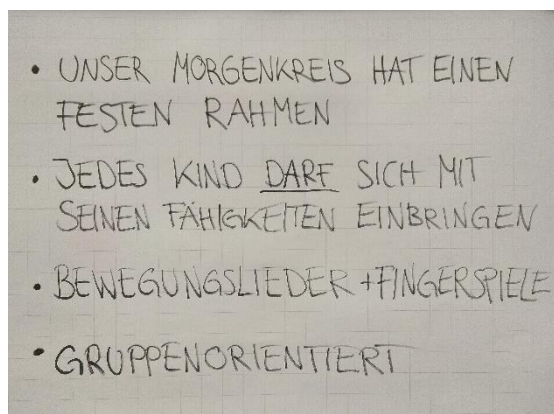 • UNSER MORGENKREIS HAT EINEN
FESTEN RAHMEN
• JEDES KIND DARF SICH MIT
SEINEN FÄHIGKEITEN EINBRINGEN
• BEWEGUNGSLIEDER + FINGERSPIELE
• GRUPPENORIENTIERT